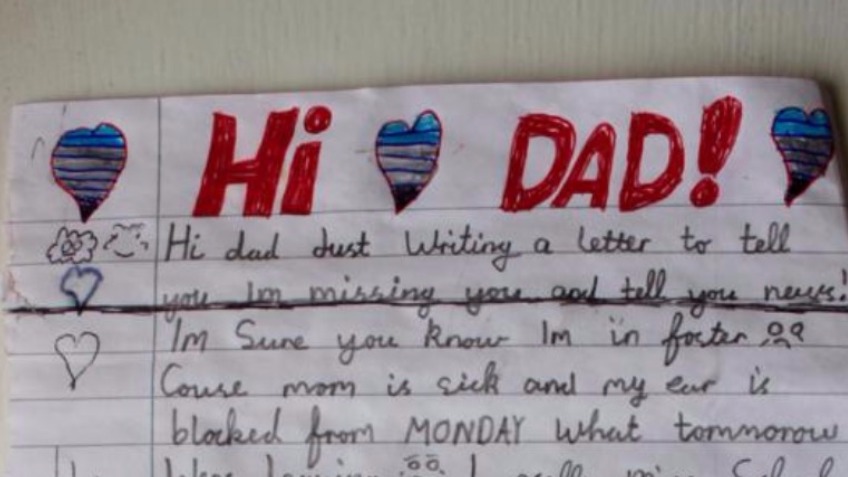 Hi DAD!
Hi dad Just Writing a letter to tell
you Im missing you and tell you news!
Im Sure you know Im in foster
Couse mom is sick and my ear is
blocked from MONDAY What tomnorow
I really miss